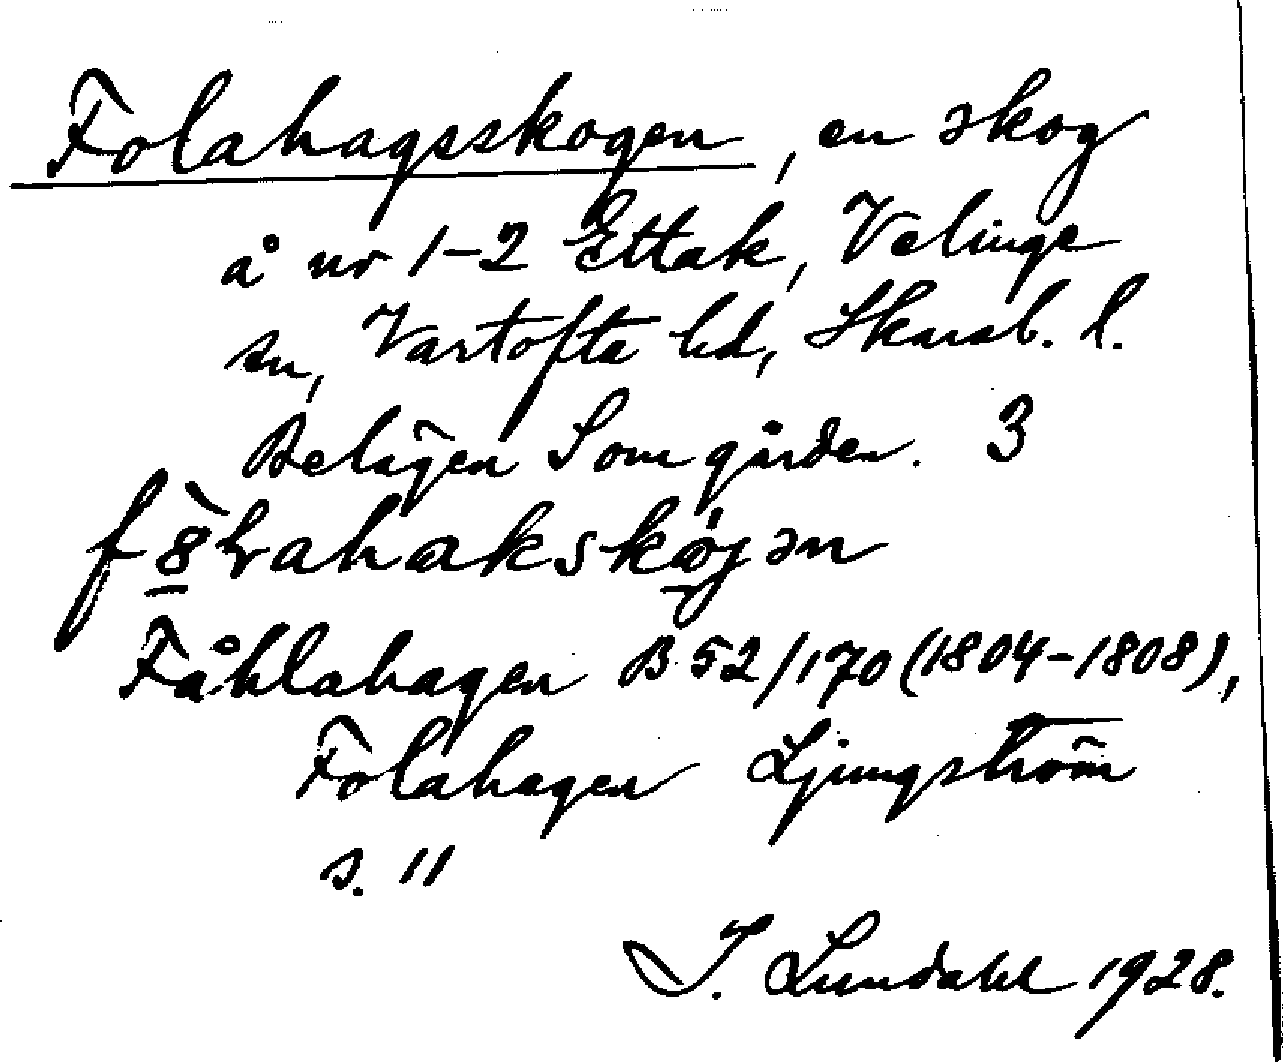 Folahagsskogen, en skog
å nr 1-2 Ettak, Velinge
sn, Vartofta hd, Skarab. l.
Belägen S om gården. 3
Fåhlahagen B 52/170 (1804-1808),
Folahagen Ljungström
s. 11
I. Lundahl 1928.